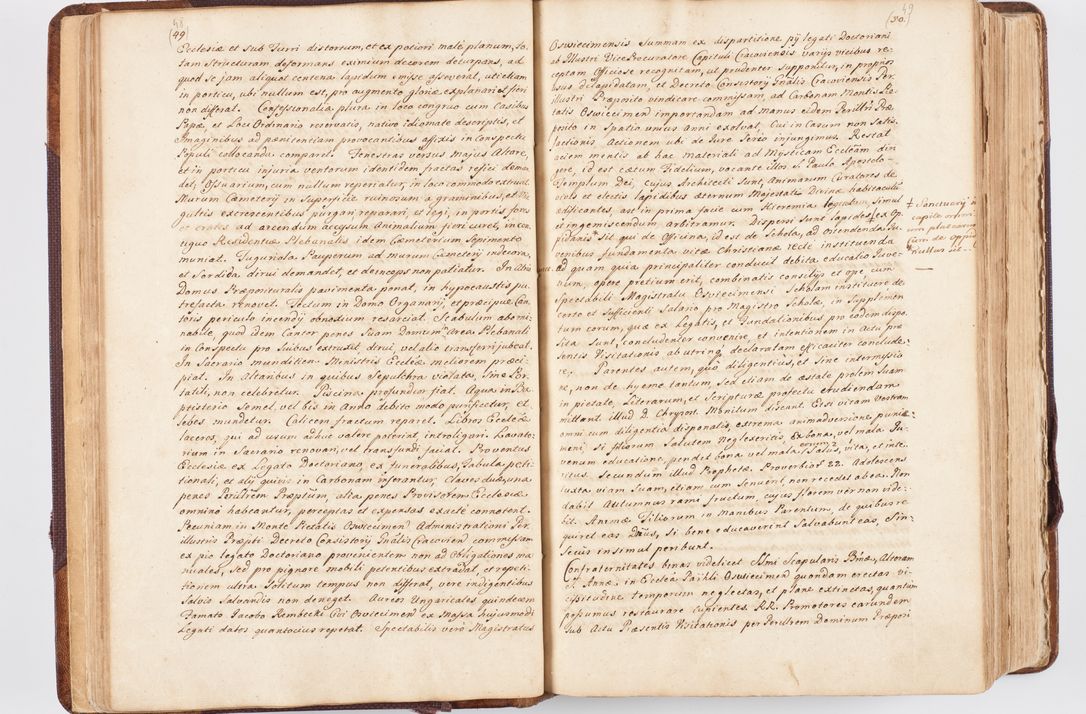 48
(49
Ecclesiæ et sub Turri distortum, et ex potiori malè planum, to-
tam structuram deformans eximium decorem deturpans, ad
quod se jam aliquot centena lapidum emisse asseverat, uti etiam
in porticu, ubi nullum est, pro augmento gloriæ explanari et fieri
non differat. Confessionalia plura in loco congruo cum Casibus
Papæ, et Loci Ordinario reservatis, nativo idiomate descriptis, et
Imaginibus ad pænitentiam provocantibus affixis in Conspectu
Populi collocanda comparet. Fenestras versus majus Altare,
et in porticu injuria ventorum identidem fractas refici deman-
det, Ossuarium, cum nullum reperiatur, in loco commodo extruat.
Murum Cæmeterij in superficie ruinosum a graminibus, et
gultis excrescentibus purgari, reparari, et tegi, in portis fores
et crates ad arcendum accessum Animalium fieri curet, in con-
tiguo Residentiæ Plebanalis idem Cæmeterium Sepimento
muniat. Tuguriola Pauperum ad murum Cæmeterij indecora,
et sordida dirui demandet, et deinceps non patiatur. In
Domus Præposituralis pavimenta ponat, in hypocaustis pu-
trefacta renovet. Tectum in Domo Organarij, et præcipuè Can-
toris periculo incendij obnoxium resarciat. Stabulum abomi-
nabile, quod idem Cantor penes suam Domum in Area Plebanali
in Conspectu pro suibus extruxit, dirui, vel alio transferri jubeat.
In Sacrario munditiem Ministris Ecclæ meliorem præci-
piat. In Altaribus in quibus sepulchra violata, sine Por-
tatili, non celebretur. Piscina profundior fiat. Aqua in Ba-
ptisterio semel, vel bis in Anno debito modo purificetur, et
lebes mundetur. Calicem fractum reparet. Libros Ecclesiæ
laceros, qui ad usum adhuc valere poterint, introligari. Lavato-
rium in Sacrario renovari, vel transfundi faciat. Proventus
Ecclesiæ ex Legato Doctoriano, ex funeralibus, Tabula peti-
tionali, et alij quivis in Carbonam inferantur, Claves duæ, una
penes Perillrem Præptum, alta penes Provisorem Ecclesiæ
omnino habeantur, perceptas et expensas exactè connotent.
Pecuniam in Monte Pietatis Oswiecimen Administrationi Per-
illustris Præpti Decreto Consistorij Gnalis Cracovien commissam
ex pio legato Doctoriano provenientem non ad Obligationes ma-
nuales, sed pro pignore mobili petentibus extradat, et repeti-
tionem ultra solitum tempus non differat, verè indigentibus
salvis salvandis non deneget. Aureos Ungaricales quindecim
Famato Jacobo Rembecki Civi Oswiecimen ex Massa hujusmodi
Legati datos quantocius repetat. Spectabilis verò Magistratus
49
(50.
Oswiecimensis summam ex dispartitione pij legati Doctoriani
ab Illustri ViceProcuratore Capituli Cracoviensis varijs vicibus re-
ceptam officiosè recognitam, ut prudenter supponitur, in proprios
usus dilapidatam, et Decreto Consistorij Gnalis Cracoviensis Per-
illustri Præposito vindicare commissam, ad Carbonam Montis Pie-
tatis Oswiecimen importandam ad manus eidem Perillri Præ-
posito in spatio unius anni exolvat. Cui in Casum non satis-
factionis Actionem ubi de Jure serio injungimus. Restat
aciem mentis ab hac materiali ad Mysticam Eccleam diri-
gere, id est cætum Fidelium, vocante illos S. Paulo Apostolo
Templum Dei, cujus Architecti sunt, Animarum Curatores de
vivis et electis lapidibus æternum Majestatis Divinæ habitaculum
ædificantes, ast in prima facie cum Hieremia simul
et ingemiscendum arbitramur. Dispersi sunt lapides + ex Op-
pidanis sit qui de Officina, id est de Schola, ad ostendenda Ju-
venibus fundamenta vitæ Christianæ rectè instituenda
ad quam quia principaliter conducit debita educatio Juve-
num, operæ pretium erit, combinatis consilijs et ope cum
Spectabili Magistratu Oswiecimensi Scholam instituere de
certo et sufficienti Salario pro Magistro Scholæ, in supplemen-
tum eorum, quæ ex Legatis, et Fundationibus pro eodem dispo-
sita sunt, concludenter convenire, et intentionem in Actu præ-
sentis Visitationis ab utrinq declaratam efficaciter conclude-
re. Parentes autem, quò diligentiùs, et sine intermissio-
ne, non de hyeme tantum, sed etiam de æstate prolem suam
in pietate, Literarum, et Scripturæ profectu erudiendam
mittant. illud d. Chrysost. Monitum discant. Etsi vitam vestram
omni cum diligentia disponatis, extrema animadversione punie-
meni, si filiorum salutem neglexeritis. Ex bona, vel mala Ju-
venum educatione, pendet bona vel mala eorum salus, vita, et inte-
ritus. secundum illud Prophetæ. Proverbior 22. Adolescens
juxta viam suam, etiam cum senuerit, non recedet ab ea. Non
dabit Autumnus rami fructum, cujus florem ver non vidi-
bit. Animæ Filiorum in Manibus Parentum, de quibus re-
quiret eas Deus, si bene educaverint salvabunt eas, sin
secùs insimul peribunt.
Confraternitates binas videlicet Ssmi Scapularis Bmæ, Alteram
S. Annæ, in Ecclea Parchli Oswiecimen quondam erectas vi-
cissitudine temporum neglectas, et plane extinctas, quantùm
possumus restaurare cupientes. R.R. Promotores earundem
sub Actu Præsentis Visitationis per Perillrem Dominum Præposi-
+ Sanctuarij in
capite omni-
um platearum